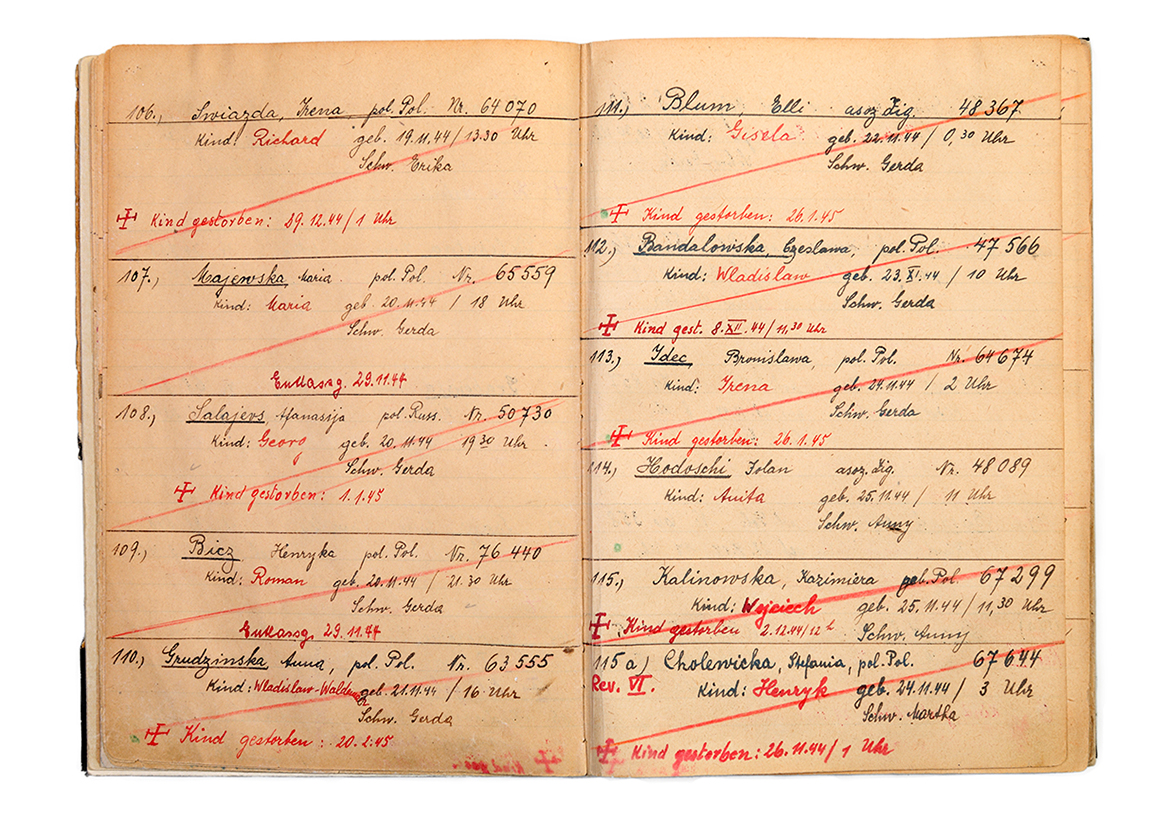 106., Swiazda, Irena, pol. Pol. Nr. 64070
Kind: Richard geb. 19.11.44 / 13.30 Uhr
Schw. Erika
Kind gestorben: 29.12.44 / 1 Uhr
107., Majewska, Maria. pol. Pol. Nr. 65559
Kind: Maria geb. 20.11.44 / 18 Uhr
Schw. Gerda
Entlassg. 29.11.44
108., Salajevs, Afanasija pol. Russ. Nr. 50730
Kind: Georg geb. 20.11.44 19 30 Uhr
Schw. Gerda
Kind gestorben: 1.1.45
109., Bicz Henryka pol. Pol. Nr. 76440
Kind: Roman geb. 20.11.44 / 21.30 Uhr
Schw. Gerda
Entlassg. 29.11.44
110., Grudzinska, Anna, pol. Pol. Nr. 63555
Kind: Wladislaw-Waldemar geb. 21.11.44 / 16 Uhr
Schw. Gerda
Kind gestorben: 20.2.45
111., Blum, Elli asoz. Zig. 48367
Kind: Gisela geb. 22.11.44 / 0,30 Uhr
Schw. Gerda
Kind gestorben: 26.1.45
112., Bandalowska, Czeslawa, pol. Pol. 47566
Kind: Wladislaw geb. 23.XI.44 / 10 Uhr
Schw. Gerda
Kind gest. 8.XII.44 / 11,30 Uhr
113., Idec, Bronislawa, pol. Pol. Nr. 64674
Kind: Irena geb. 24.11.44 / 2 Uhr
Schw. Gerda
Kind gestorben: 26.1.45
114., Hodoschi Jolan asoz. Zig. Nr. 48089
Kind: Anita geb. 25.11.44 / 11 Uhr
Schw. Anny
115., Kalinowska, Kazimiera pol. Pol. 67299
Kind: Wojciech geb. 25.11.44 / 11,30 Uhr
Kind gestorben 2.12.44/12 h Schw. Anny
115 a) Cholewicka, Stefania, pol. Pol. 67644
Rev. VI. Kind: Henryk geb. 24.11.44 / 3 Uhr
Schw. Martha
Kind gestorben: 26.11.44 / 1 Uhr